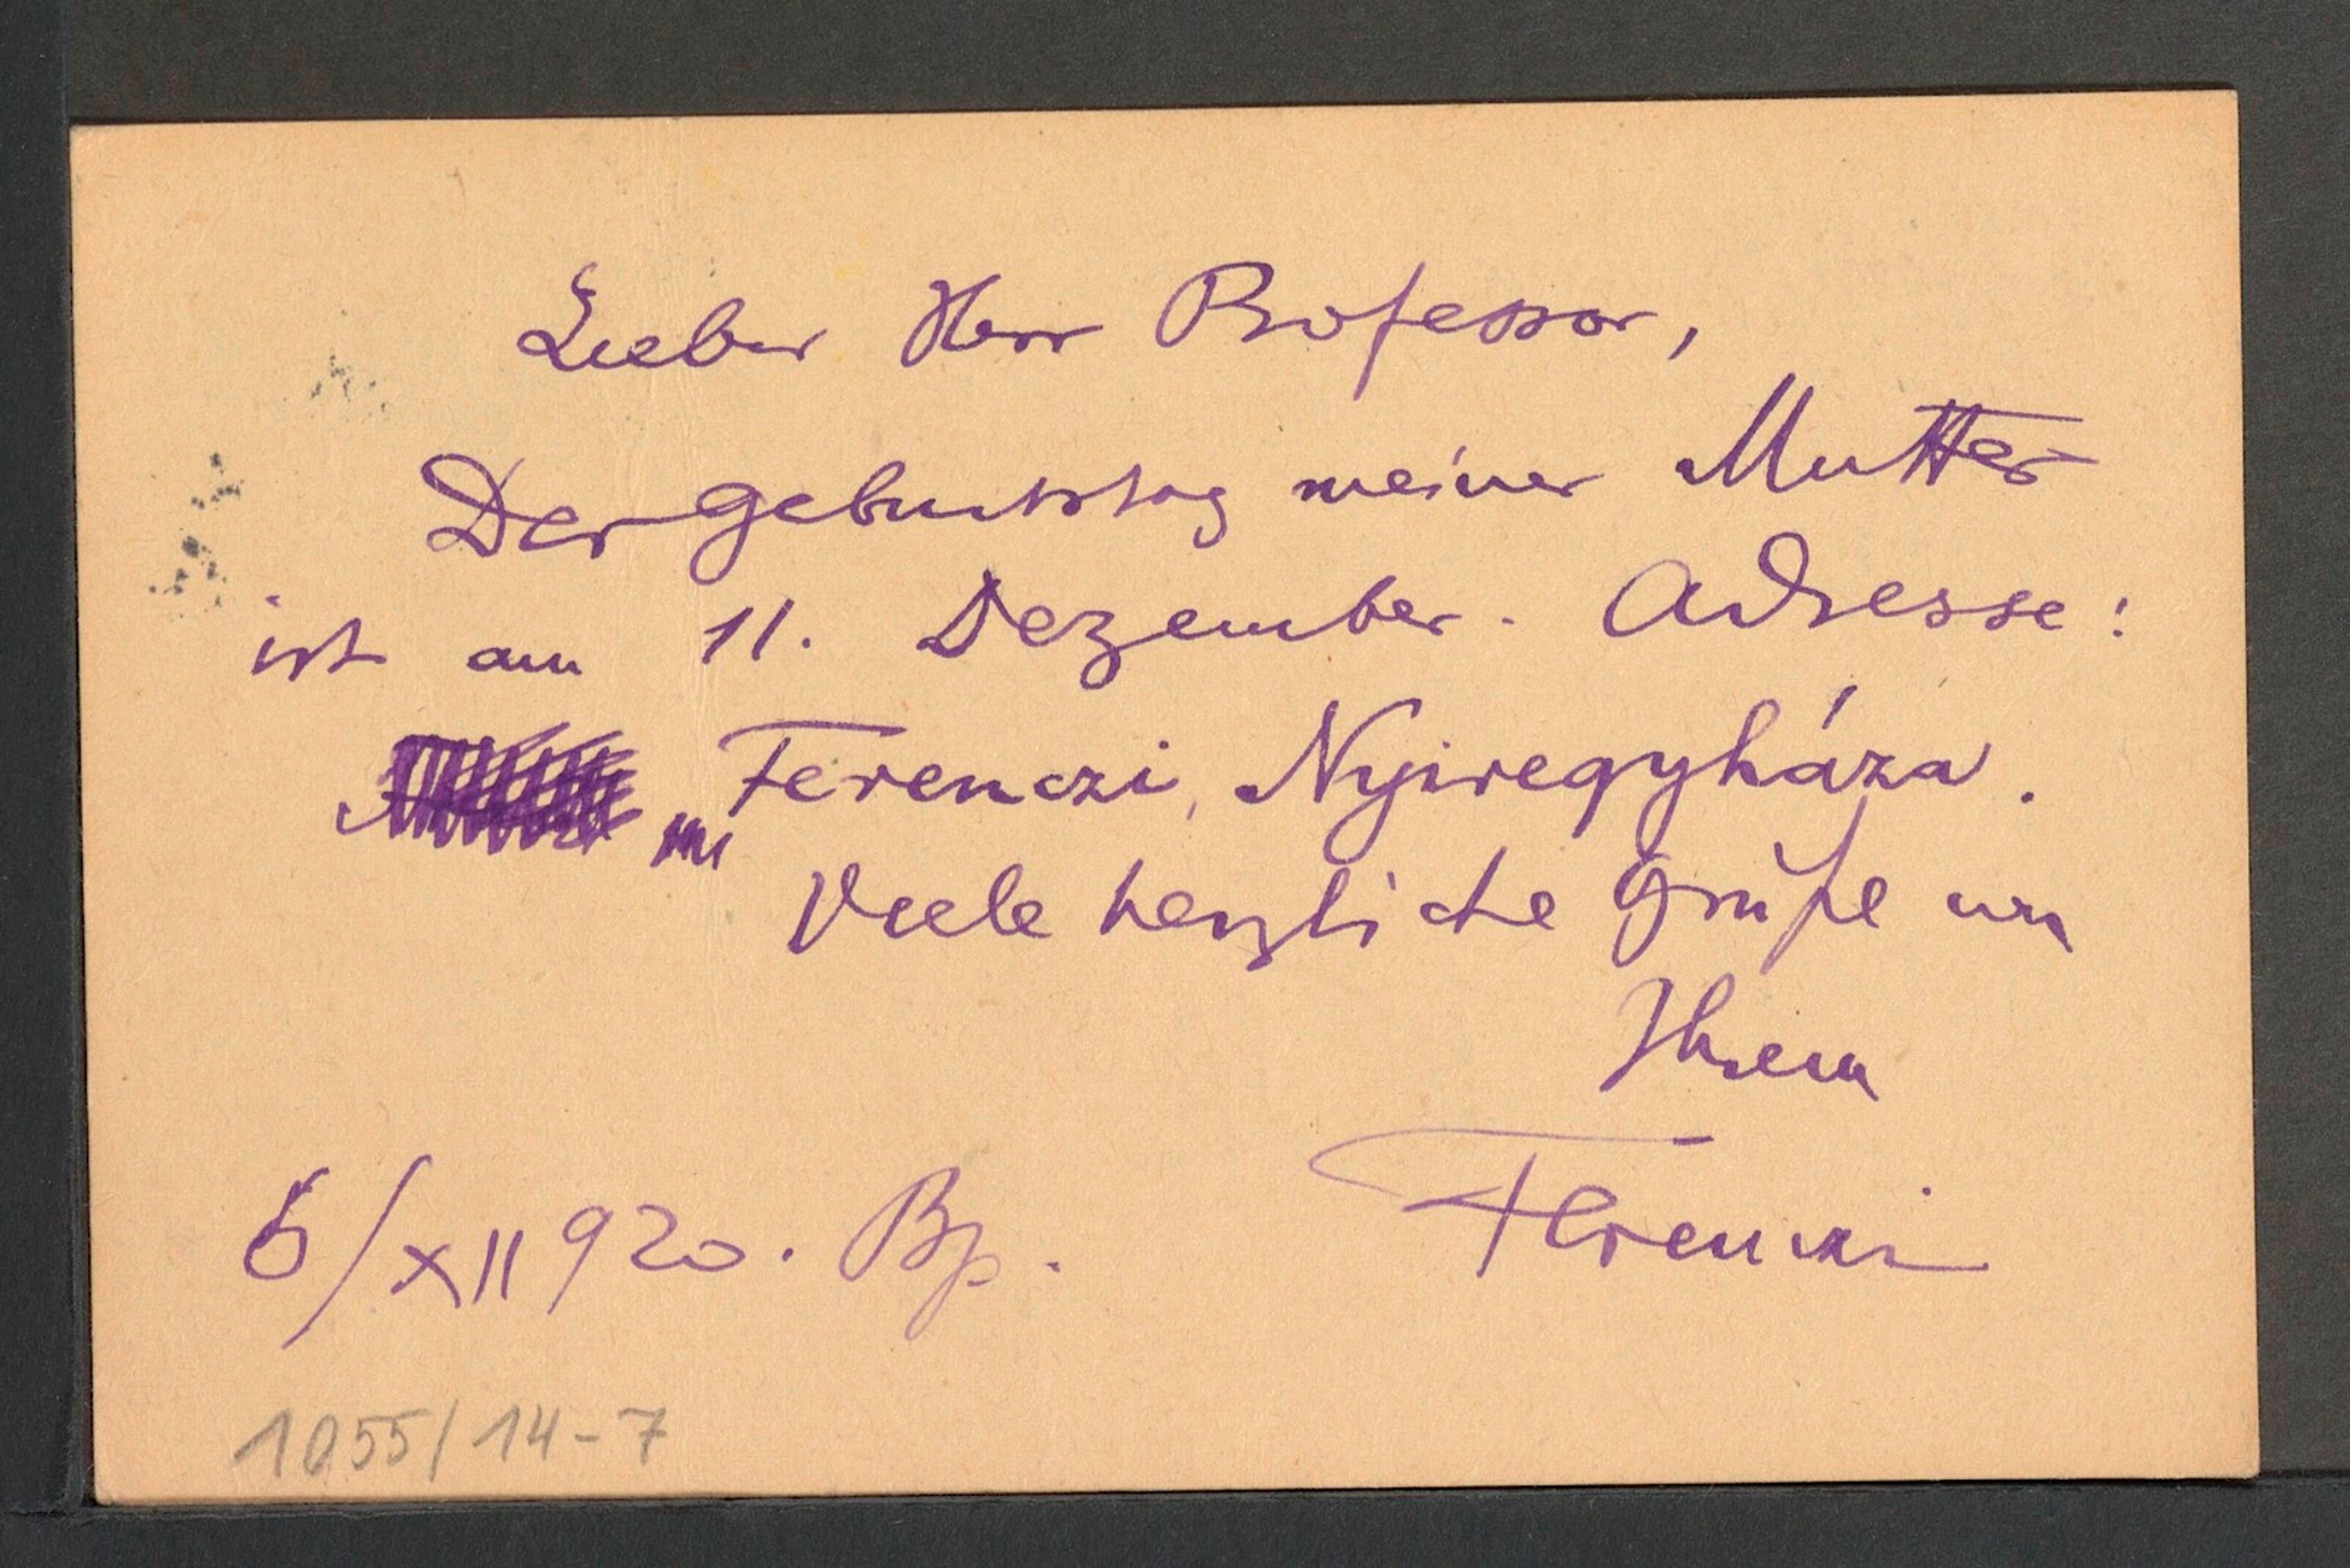 Lieber Herr Professor,
Der Geburtstag meiner Mutter
ist am 11. Dezember. Adresse:
Ferenczi, Nyiregyháza.
Viele herzliche Grüße von
Ihrem
Ferenczi
6/XII 920. Bp.
1055/14-7